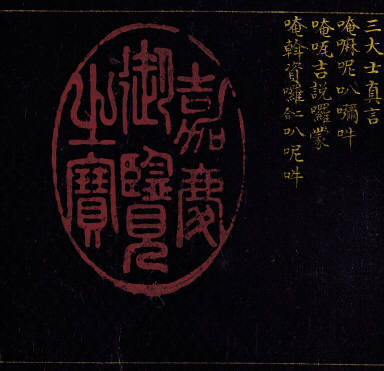 三大士真言
唵嘛呢叭嘬吽
唵哑吉説囉蒙
唵斡資囉𠺁叭呢吽
嘉慶
御覽
之寶